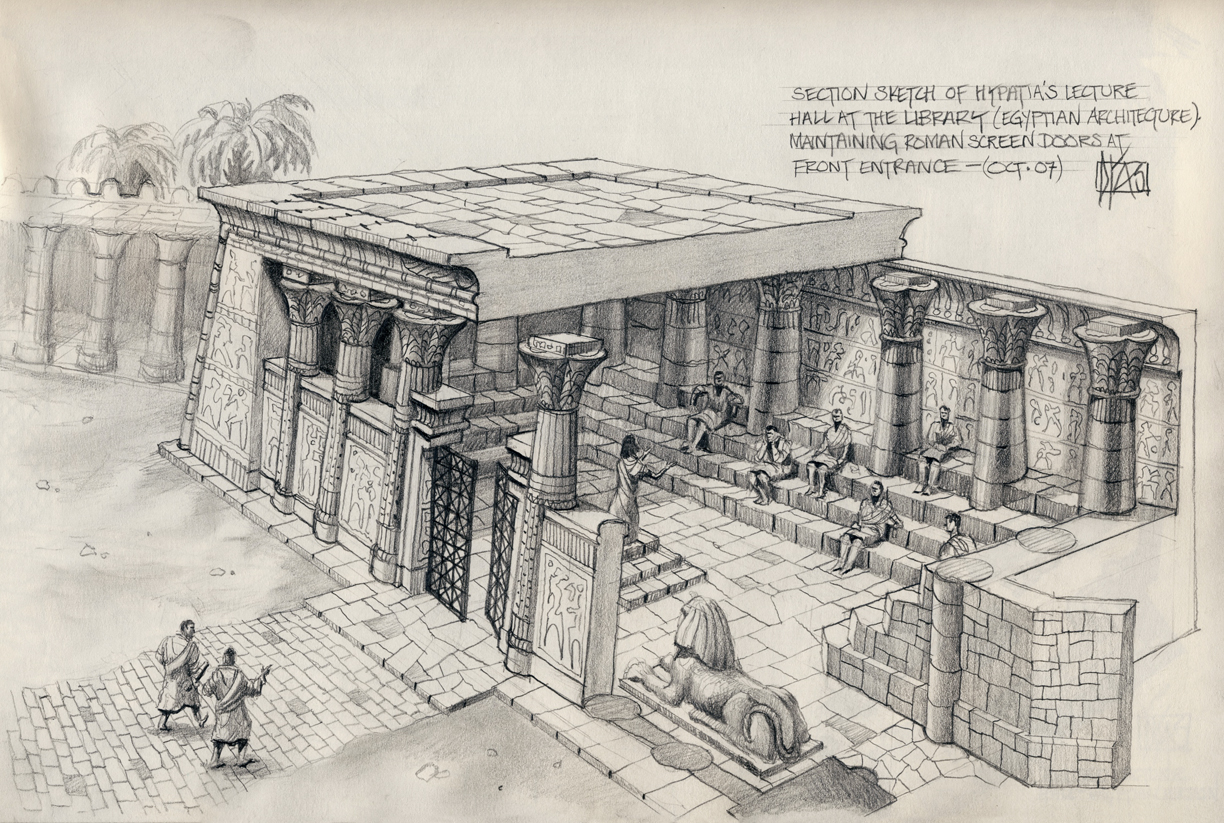 SECTION SKETCH OF HYPATIA'S LECTURE
HALL AT THE LIBRARY (EGYPTIAN ARCHITECTURE).
MAINTAINING ROMAN SCREEN DOORS AT
FRONT ENTRANCE — (OCT. 07)